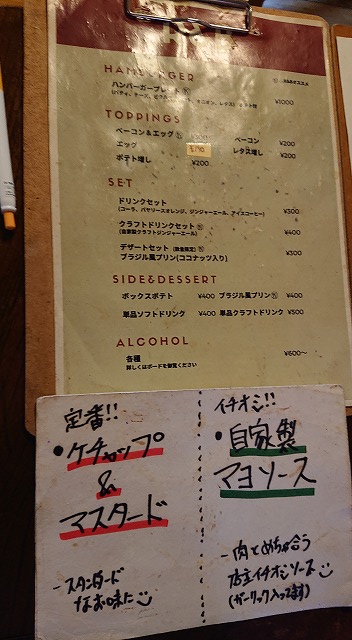 HAMBURGER
ハンバーガープレート
¥1000
TOPPINGS
ベーコン&エッグ
エッグ
ポテト増し ¥200
ベーコン ¥200
レタス増し ¥200
SET
ドリンクセット
(コーラ、バヤリースオレンジ、ジンジャーエール、アイスコーヒー) ¥300
クラフトドリンクセット
(自家製クラフトジンジャーエール) ¥400
デザートセット (数量限定)
ブラジル風プリン(ココナッツ入り) ¥300
SIDE&DESSERT
ボックスポテト ¥400 ブラジル風プリン ¥400
単品ソフトドリンク ¥400 単品クラフトドリンク ¥500
ALCOHOL
各種 ¥600〜
詳しくはボードを御覧ください
定番!!
・ケチャップ
&
マスタード
-スタンダード
なお味に
イチオシ!!
・自家製
マヨソース
-肉とめちゃ合う
店主イチオシソース
(ガーリック入ってます)